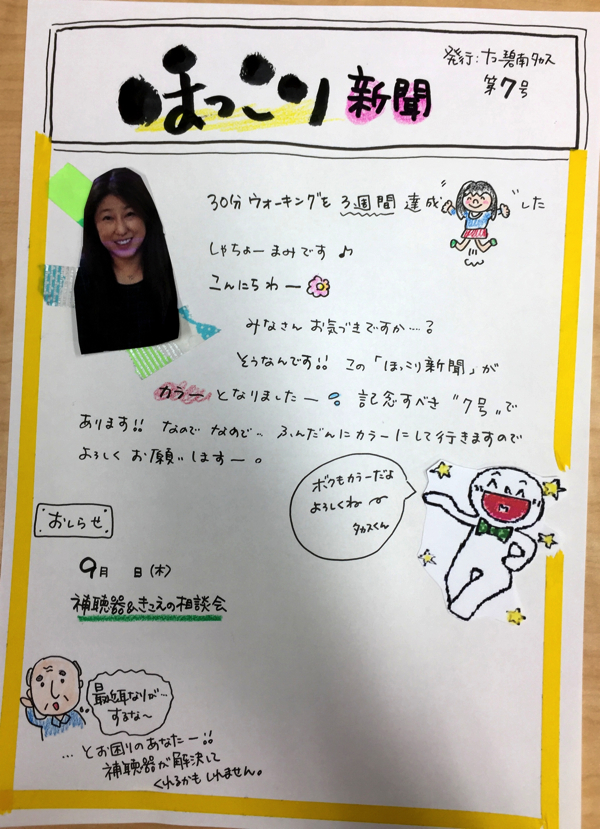 ほっこり新聞
発行:ナコ碧南タカス
第7号
30分ウォーキングを3週間達成"した
しゃちょー まみです♪
こんにちわー
みなさん お気づきですか…?
そうなんです!! この「ほっこり新聞」が
カラーとなりましたー! 記念すべき"7号"で
あります!! なので なので… ふんだんにカラーにして行きますので
よろしく お願いしますー。
ボクもカラーだよ
よろしくねー
タカスくん
おしらせ
9月 日(木)
補聴器&きこえの相談会
最近耳なりが…
するな~
…とお困りのあなたー!!
補聴器が解決して
くれるかもしれません。